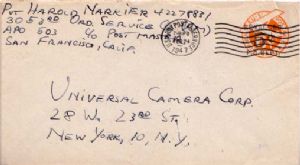 PVT HAROLD MARKIER 42279831
3053RD ORD. SERVICE
APO 503 % POST MASTER
SAN FRANCISCO, CALIF.
1947
UNIVERSAL CAMERA CORP.
28 W. 23RD ST.
NEW YORK, 10, N.Y.